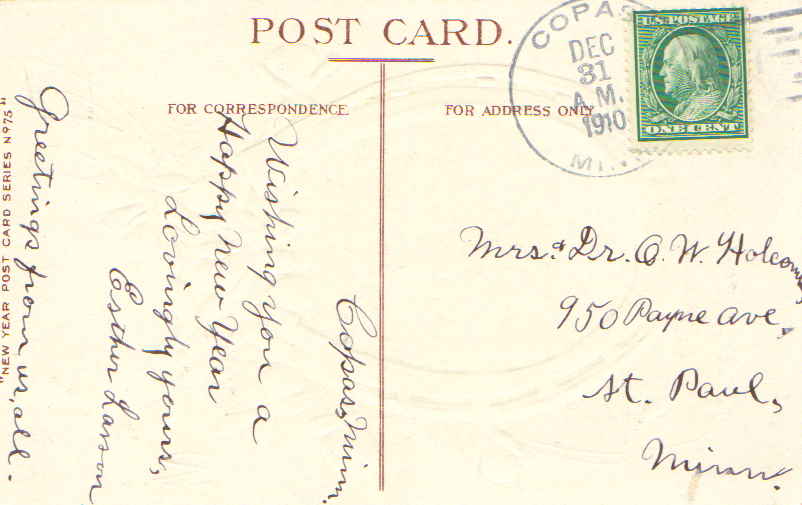 POST CARD.
FOR CORRESPONDENCE
FOR ADDRESS ONLY
COPAS
DEC
31
A.M.
1910
MINN
U.S. POSTAGE
ONE CENT
Copas, Minn.
Wishing you a
Happy New Year
Lovingly yours,
Esther Larson
Greetings from us, all.
"NEW YEAR POST CARD SERIES Nº 75"
Mrs. & Dr. O. W. Holcomb,
950 Payne Ave,
St. Paul,
Minn.